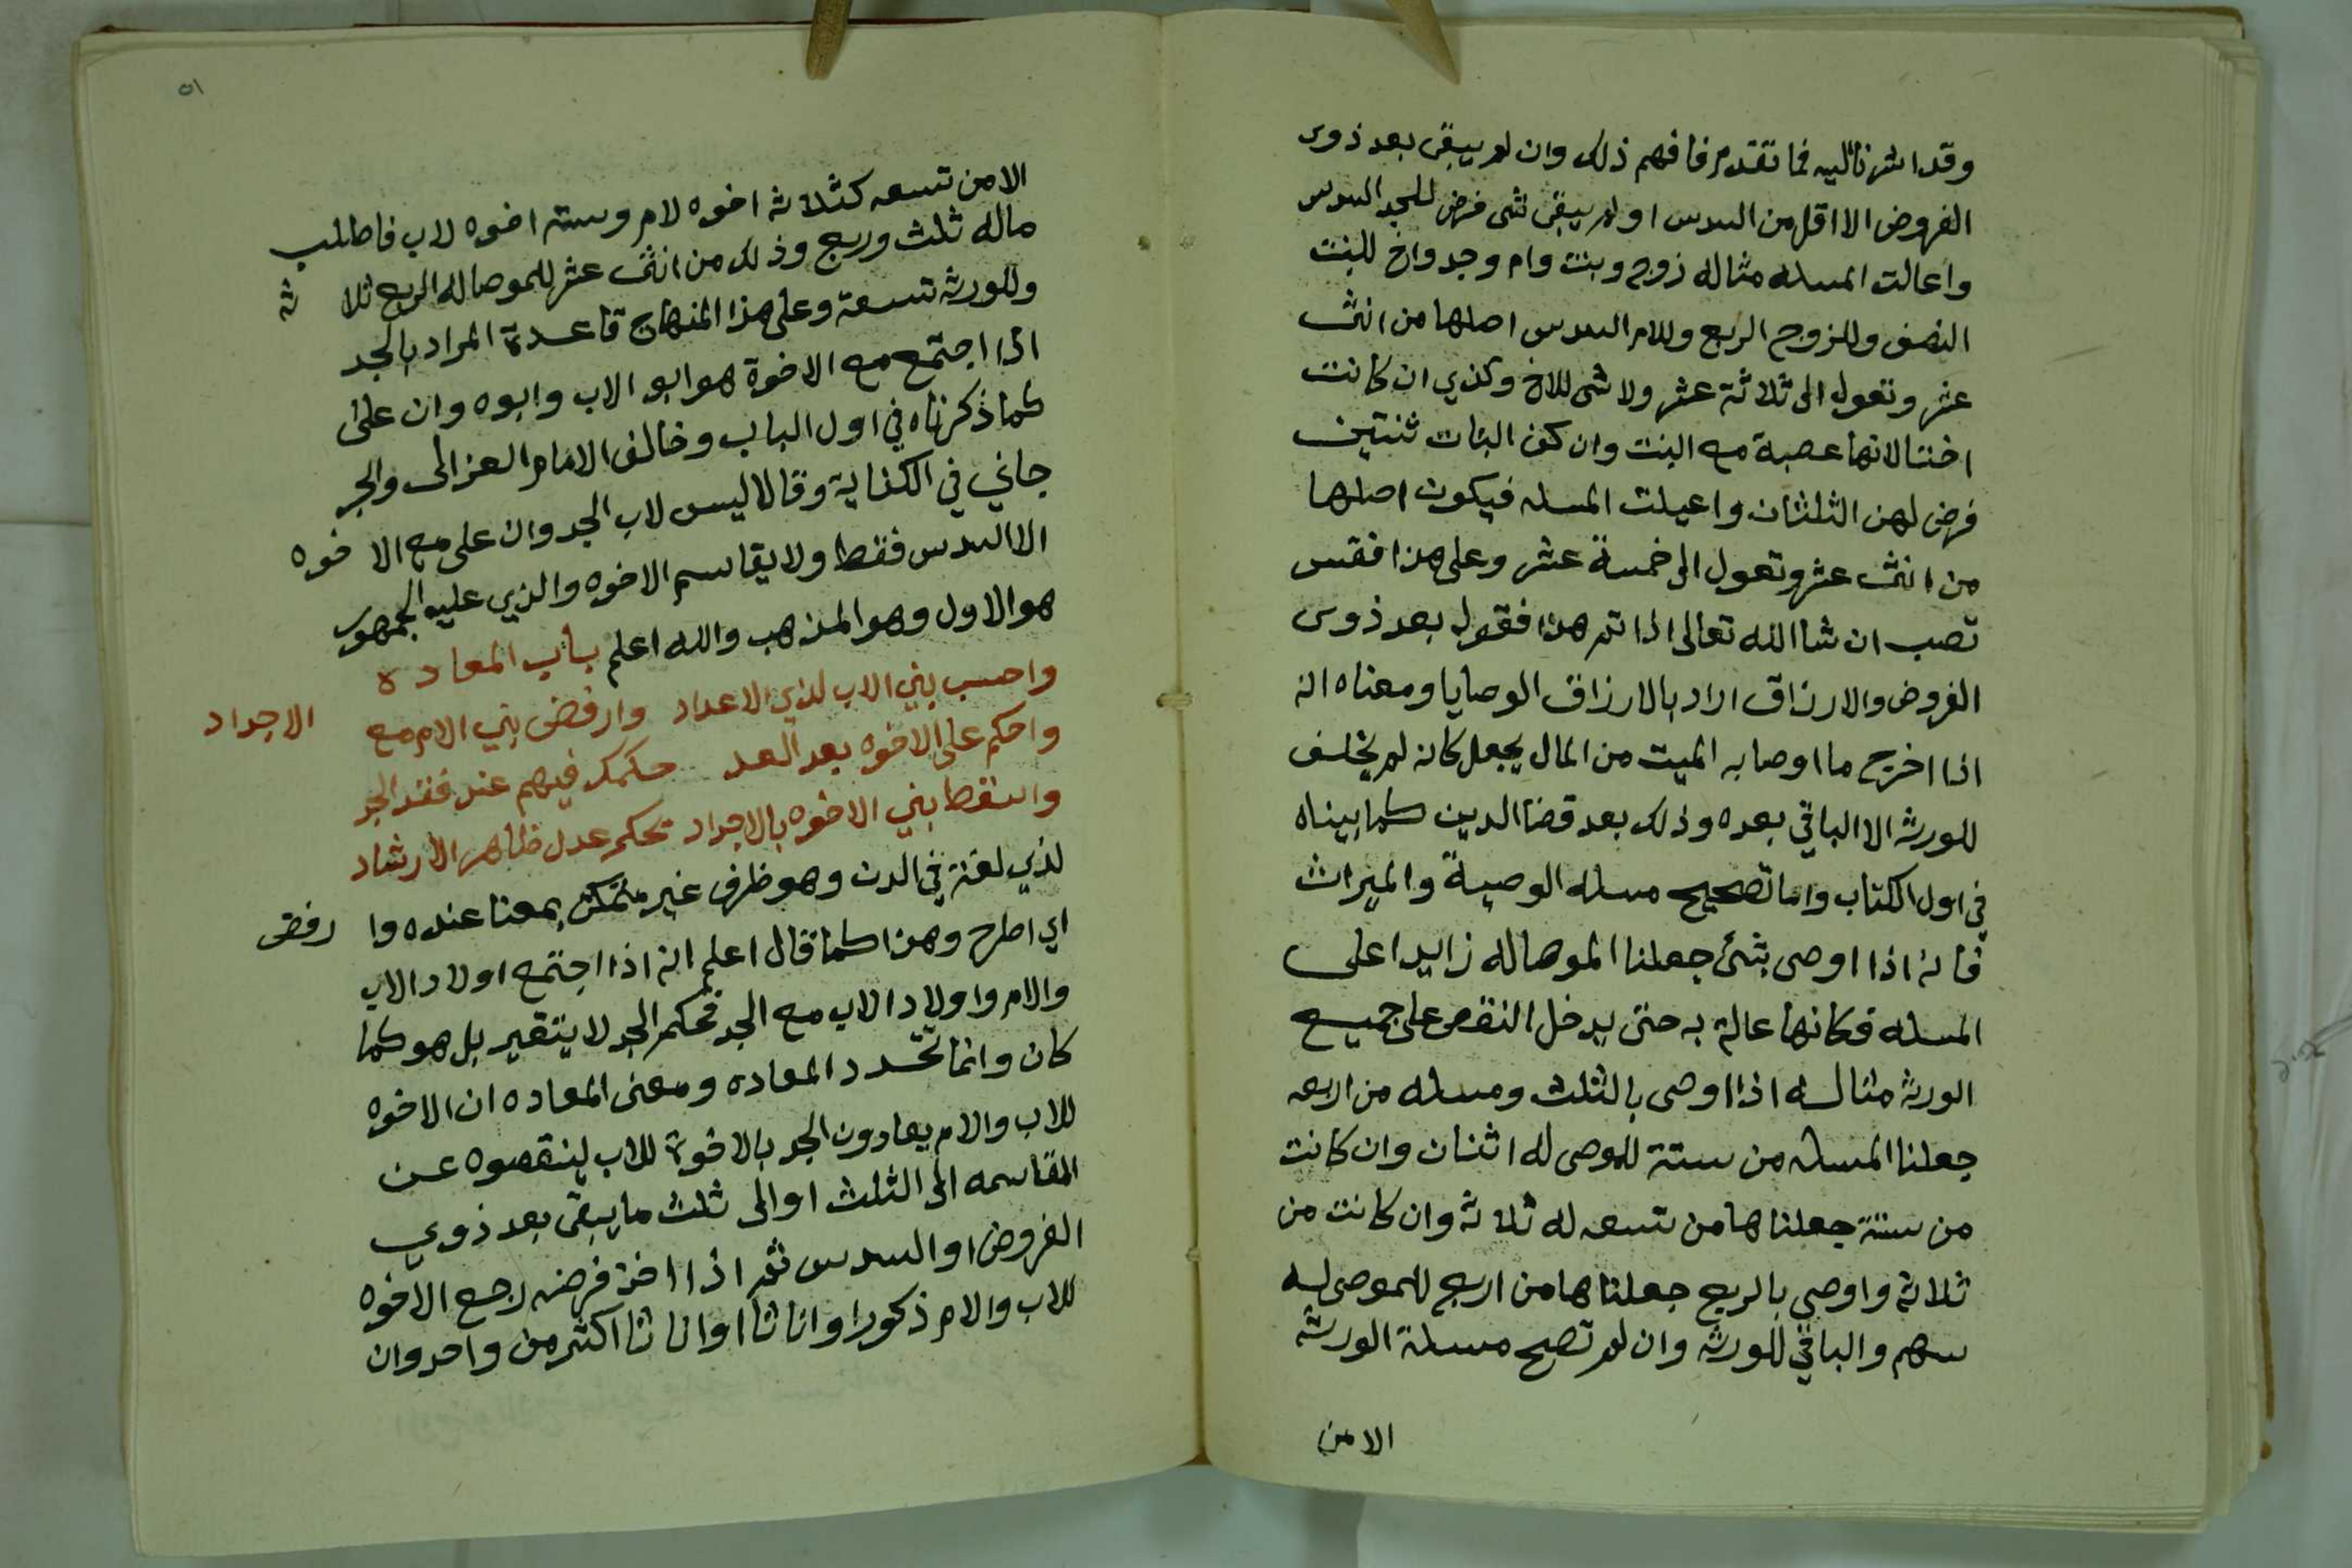 وقد اشرنا اليه فما تقدم فافهم ذلك وان لم يبقى بعد ذوى
الفروض الا اقل من السدس او لم يبقى شى فرض للجد السدس
واعالت المسله مثاله زوج وبنت وام وجد واخ للبنت
النصف وللزوج الربع وللام السدس اصلها من اثنى
عشر وتعول الى ثلاثة عشر ولا شى للاخ وكذي ان كانت
اختا لانها عصبة مع البنت وان كن البنات ثنتين
فرض لهن الثلثان واعيلت المسله فيكون اصلها
من اثنى عشر وتعول الى خمسة عشر وعلى هذا فقس
تصب ان شا الله تعالى اذا تم هذا فقوله بعد ذوى
الفروض والارزاق اراد بالارزاق الوصايا ومعناه انه
اذا اخرج ما اوصا به الميت من المال يجعل كانه لم يخلف
للورثه الا الباقي بعده وذلك بعد قضا الدين كما بيناه
في اول الكتاب واما تصحيح مسله الوصية والميراث
فانه اذا اوصى بشئ جعلنا الموصا له زايدا على
المسله فكانها عالة به حتى يدخل النقص على جميع
الورثه مثاله اذا اوصى بالثلث ومسله من اربعه
جعلنا المسله من ستة للموصى له اثنان وان كانت
من ستة جعلناها من تسعه له ثلاثه وان كانت من
ثلاثة واوصي بالربع جعلناها من اربع للموصى له
سهم والباقي للورثه وان لم تصح مسلة الورثه
الا من
٥١
الا من تسعه كثلاثه اخوه لام وسته اخوه لاب فاطلب
ماله ثلث وربع وذلك من اثنى عشر للموصا له الربع ثلا ثه
وللورثه تسعة وعلى هذا المنهاج قاعدة المراد بالجد
اذا اجتمع مع الاخوة هو ابو الاب وابوه وان على
كما ذكرناه في اول الباب وخالف الامام الغزالى والجر
جاني في الكفاية وقالا ليس لاب الجد وان على مع الا خوه
الا السدس فقط ولا يقاسم الاخوه والذي عليه الجمهور
هو الاول وهو المذهب والله اعلم باب المعاده
واحسب بني الاب لذي الاعداد وارفض بني الام مع الاجداد
واحكم على الاخوه بعد العد حكمك فيهم عند فقد الجد
واسقط بني الاخوه بالاجداد بحكم عدل ظاهر الارشاد
لذي لغة في الدن وهو ظرف غير متمكن بمعنا عنده وا رفض
اي اطرح وهذا كما قال اعلم انه اذا اجتمع اولاد الاب
والام واولاد الاب مع الجد فحكم الجد لا يتغير بل هو كما
كان وانما تجدد المعاده ومعنى المعاده ان الاخوه
للاب والام يعادون الجد بالاخوة للاب لينقصوه عن
المقاسمه الى الثلث او الى ثلث ما يبقى بعد ذوي
الفروض او السدس ثم اذا اخذ فرضه رجع الاخوه
للاب والام ذكورا واناثا او اناثا اكثر من واحد وان